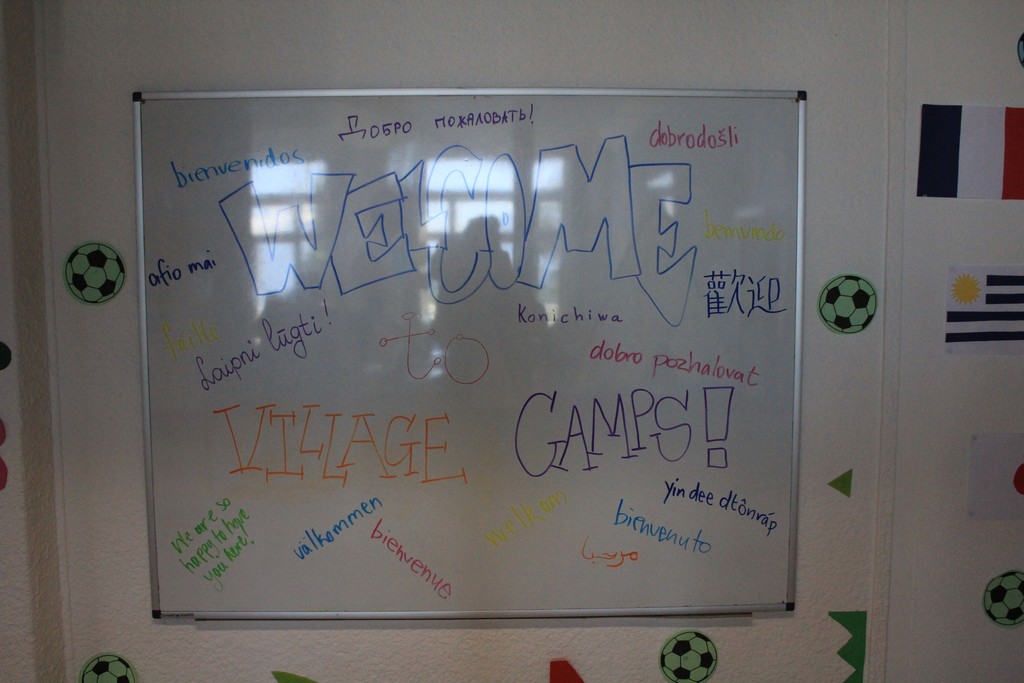 Добро пожаловать!
dobrodošli
bienvenidos
WELCOME
bemvindo
afio mai
歡迎
Konichiwa
failte
Laipni lūgti!
to
dobro pozhalovat
VILLAGE
CAMPS!
yin dee dtônráp
We are so
happy to have
you here!
välkommen
bienvenue
welkom
bienvenuto
مرحبا